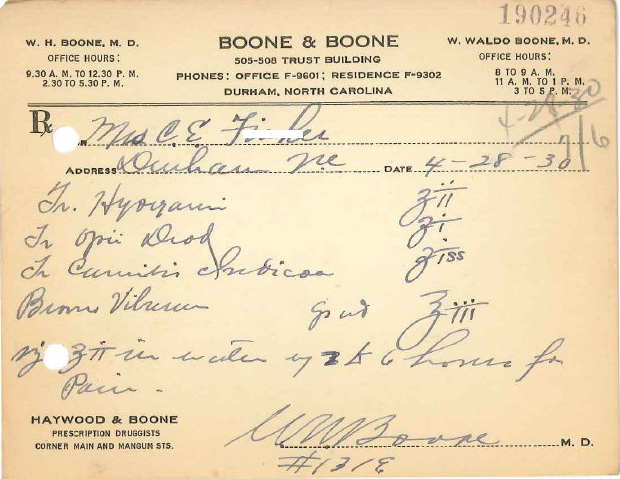 190246
W. H. BOONE, M. D.
OFFICE HOURS:
9.30 A. M. TO 12.30 P. M.
2.30 TO 5.30 P. M.
BOONE & BOONE
505-508 TRUST BUILDING
PHONES: OFFICE F-9601; RESIDENCE F-9302
DURHAM, NORTH CAROLINA
W. WALDO BOONE, M. D.
OFFICE HOURS:
8 TO 9 A. M.
11 A. M. TO 1 P. M.
3 TO 5 P. M.
4-28-30
7/6
Rx
Mrs C. E.
ADDRESS Durham NC DATE 4-28-30
Tr. Hyoscyami ʒii
Tr Opii Deod ʒi
Tr Cannibis Indicae ʒiss
Bromo Viburnum q s ad ʒiii
ʒii in water every 2 to 6 hours for
Pain.
HAYWOOD & BOONE
PRESCRIPTION DRUGGISTS
CORNER MAIN AND MANGUM STS.
W H Boone M. D.